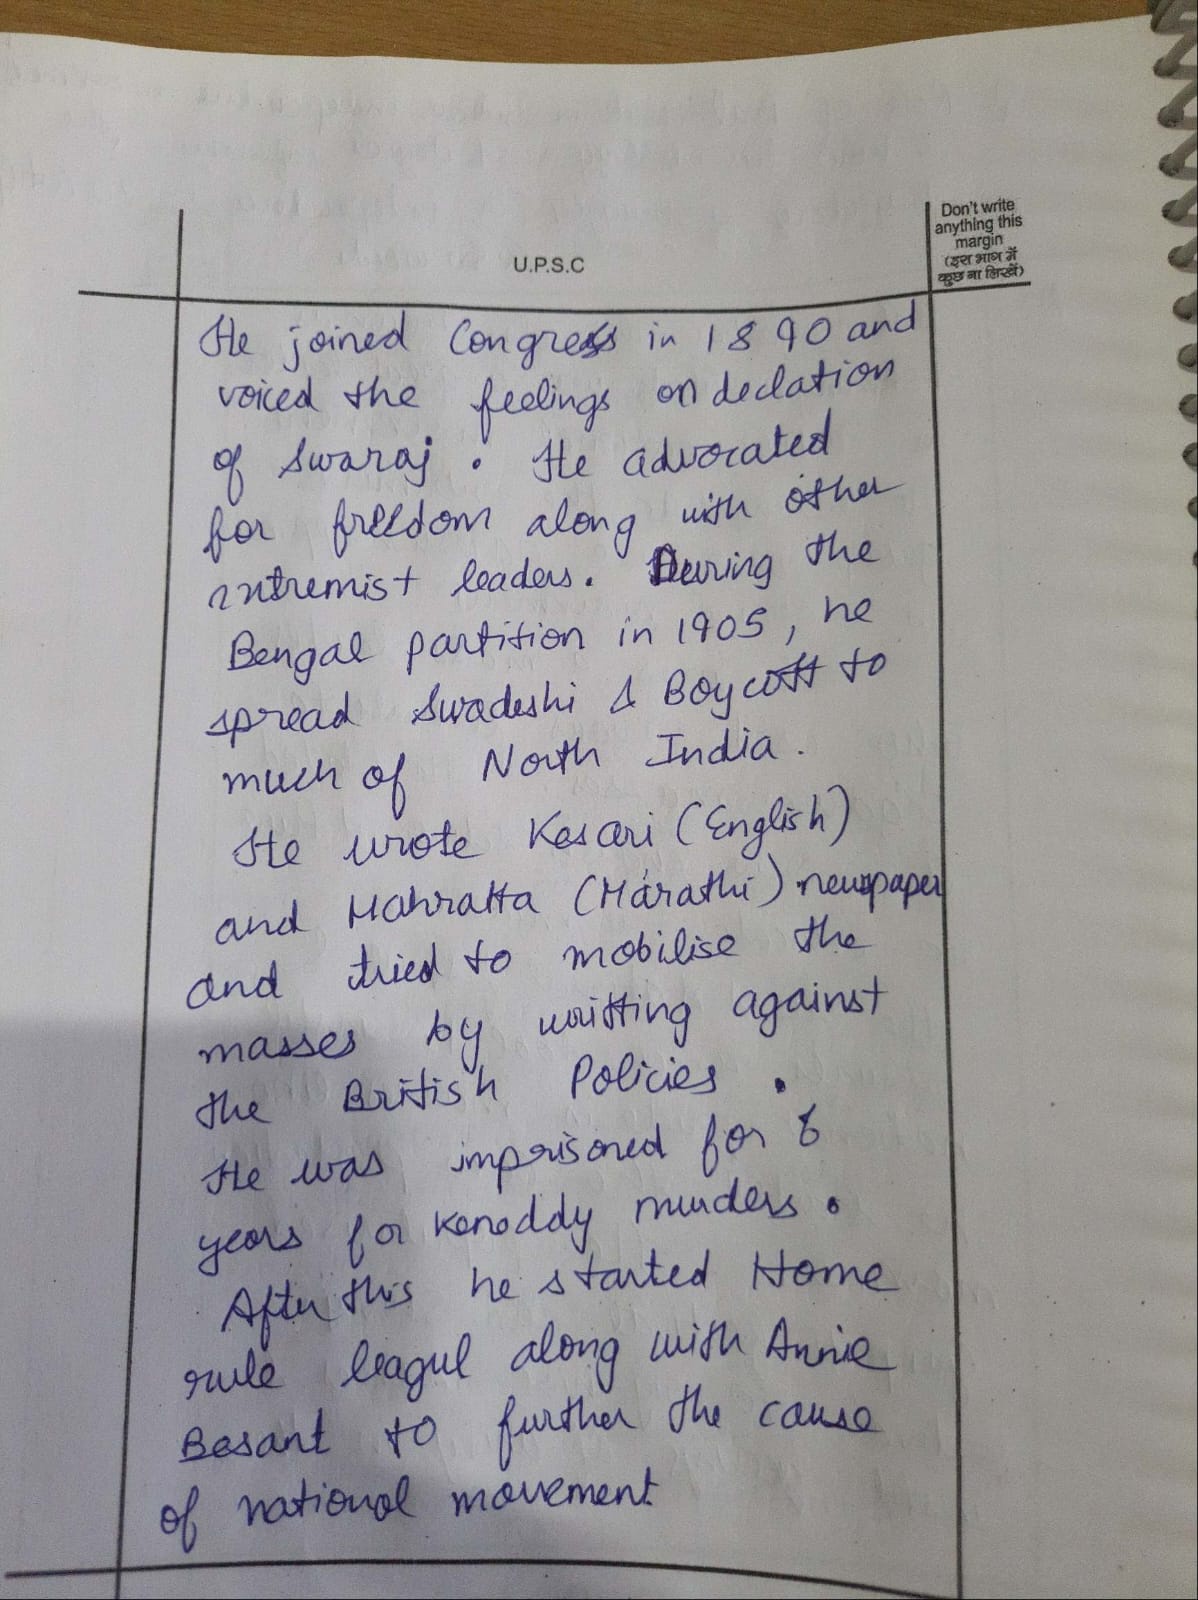 Don't write
anything this
margin
(इस भाग में
कुछ ना लिखें)
U.P.S.C
He joined Congress in 1890 and
voiced the feelings on declation
of Swaraj. He advocated
for freedom along with other
extremist leaders. During the
Bengal partition in 1905, he
spread Swadeshi & Boycott to
much of North India.
He wrote Kesari (English)
and Mahratta (Marathi) newspaper
and tried to mobilise the
masses by writting against
the British Policies.
He was imprisoned for 6
years for Keneddy murders.
After this he started Home
rule league along with Annie
Besant to further the cause
of national movement